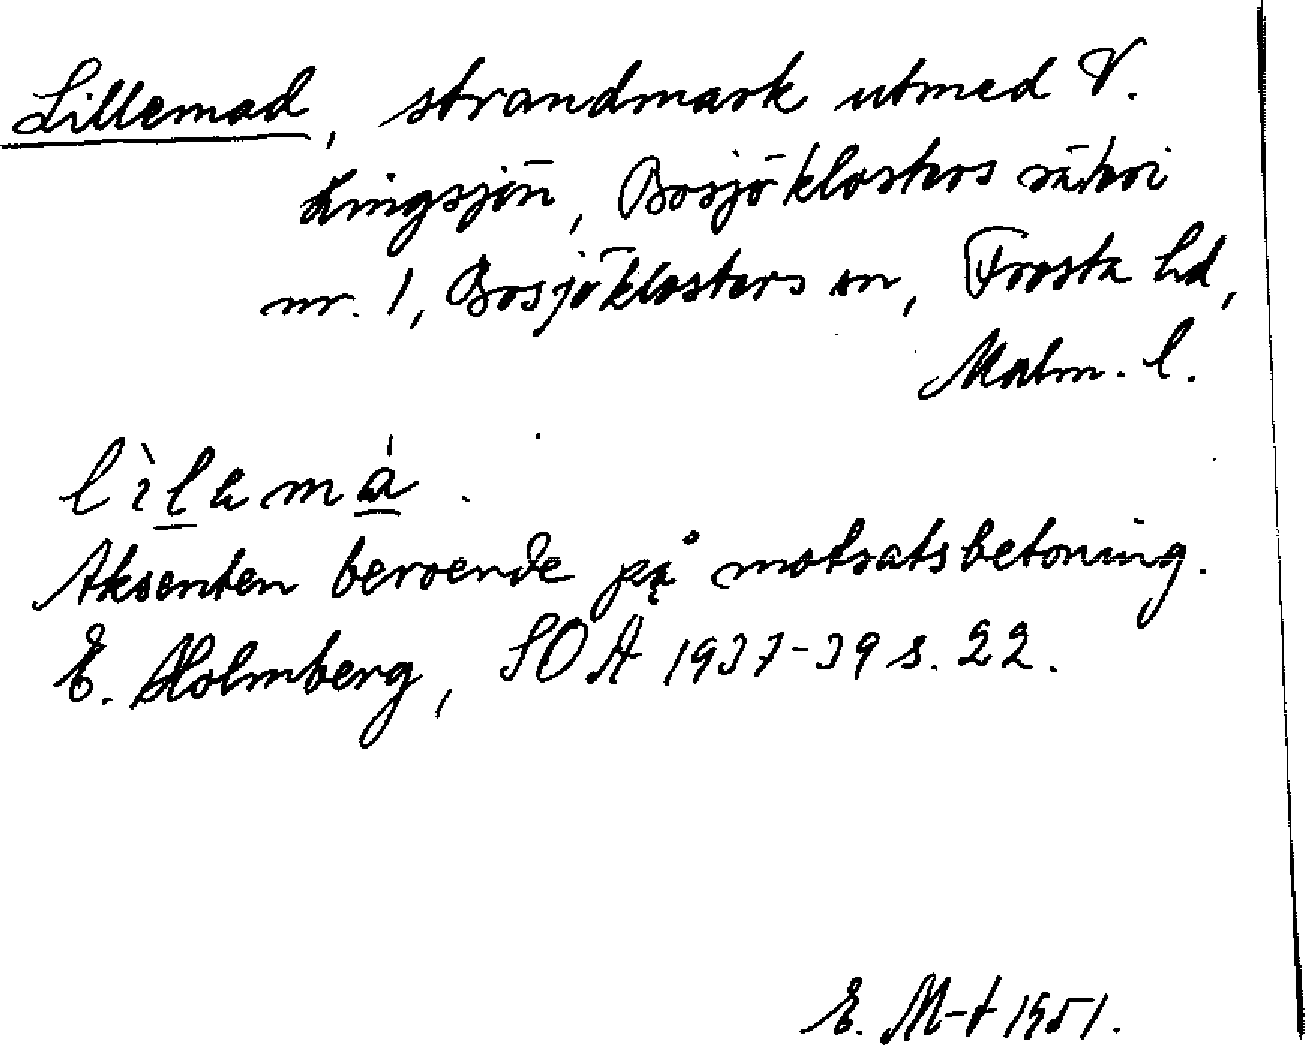 Lillemad, strandmark utmed V.
Ringsjön, Bosjöklosters säteri
nr. 1, Bosjöklosters sn, Frosta hd,
Malm. l.
lìlamá.
Aksenten beroende på motsatsbetoning.
E. Holmberg, SOA 1937-39 s. 22.
E. M-t 1951.